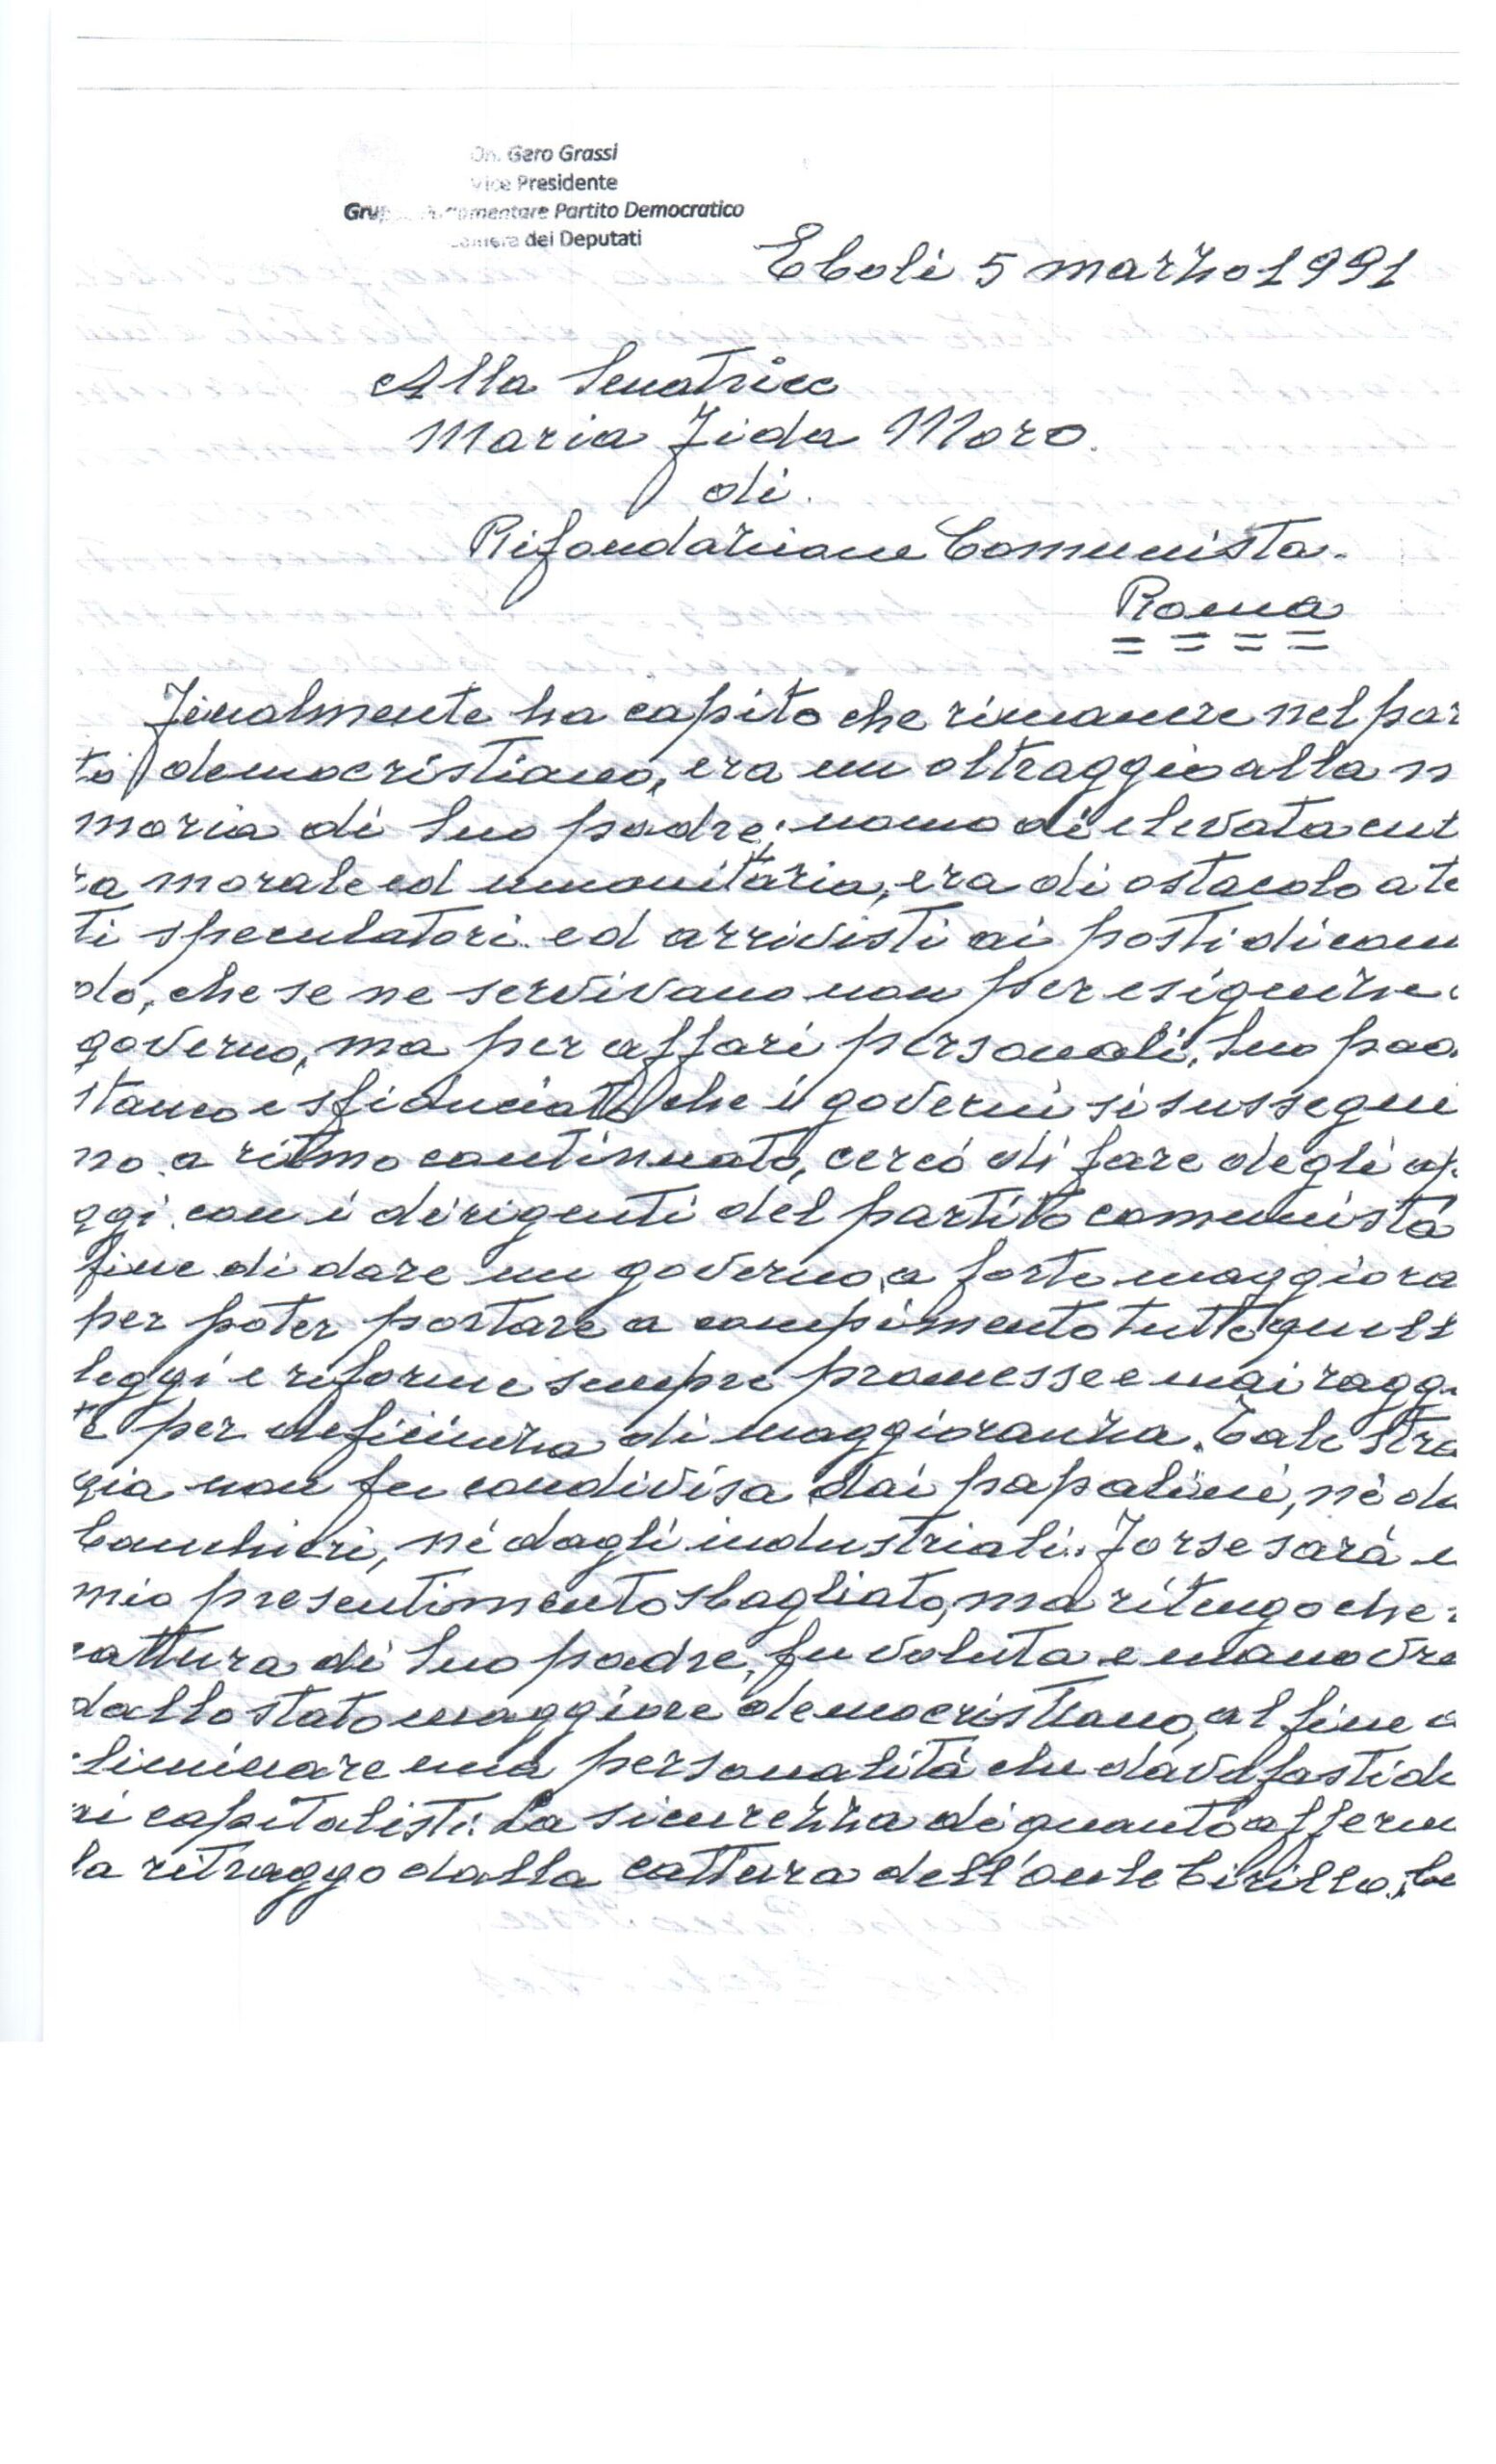 On. Gero Grassi
Vice Presidente
Gruppo Parlamentare Partito Democratico
Camera dei Deputati
Eboli 5 marzo 1991
Alla Senatrice
Maria Fida Moro.
di.
Rifondazione Comunista.
Roma
Finalmente ha capito che rimanere nel par
to democristiano, era un oltraggio alla m
moria di Suo padre; uomo di elevata cut
ra morale ed umanitaria, era di ostacolo a te
ti speculatori ed arrivisti ai posti di com
do, che se ne servivano non per esigenze
governo, ma per affari personali. Suo pad
stanco e sfiduciato che i governi si sussegui
no a ritmo continuato, cercò di fare degli ap
ggi con i dirigenti del partito comunista
fine di dare un governo, a forte maggiora
per poter portare a compimento tutte quell
leggi e riforme sempre promesse e mai raggi
te per deficienza di maggioranza. Tale stra
gia non fu condivisa dai papalini, nè da
banchieri, nè dagli industriali. Forse sarà u
mio presentimento sbagliato, ma ritengo che
cattura di Suo padre, fu voluta e manovra
dallo stato maggiore democristiano, al fine d
liminare una personalità che dava fastidi
ai capitalisti: La sicurezza di quanto afferm
la ritraggo dalla cattura dell'on.le Cirillo.